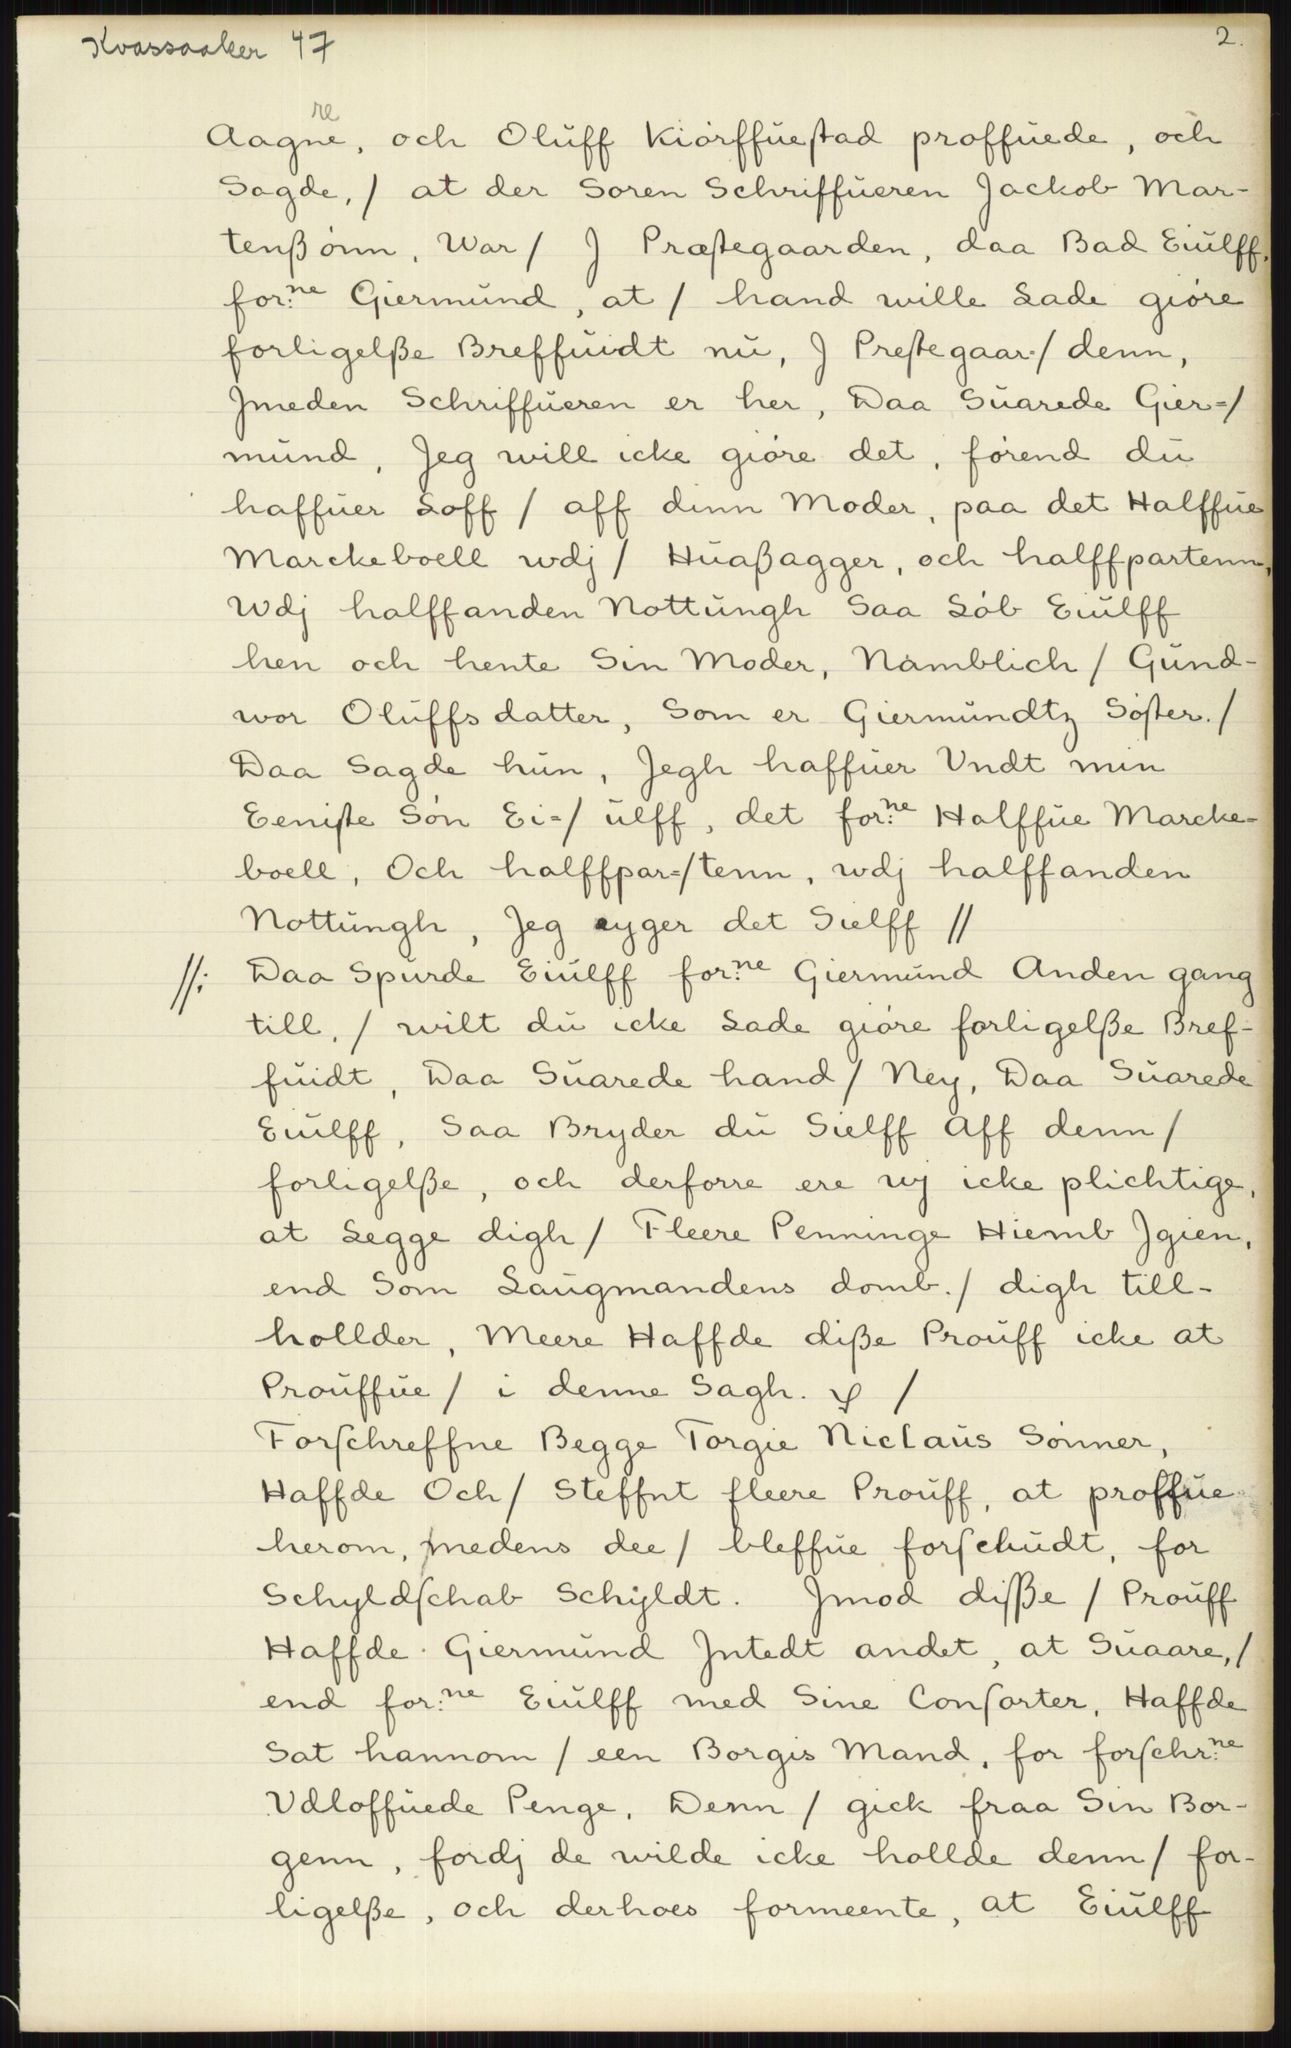 Kvassaaker 47
2.
re
Aagne, och Oluff Kiörffuestad proffuede, och
Sagde, / at der Soren Schriffueren Jackob Mar-
tenßönn, War / J Præstegaarden, daa Bad Eiulff,
for:ne Giermund, at / hand wille Lade giöre
forligelße Breffuidt nu, J Prestegaar-/ denn,
Jmeden Schriffueren er her, Daa Suarede Gier=/
mund, Jeg will icke giöre det, förend du
haffuer Loff / aff dinn Moder, paa det Halffue
Marckeboell wdj / Huaßagger, och halffpartenn,
Wdj halffanden Nottungh Saa Löb Eiulff
hen och hente Sin Moder, Namblich / Gund-
wor Oluffsdatter, Som er Giermundtz Söster. /
Daa Sagde hun, Jegh haffuer Vndt min
Eeniste Sön Ei=/ ulff, det for:ne Halffue Marcke-
boell, Och halffpar=/tenn, wdj halffanden
Nottungh, Jeg eyger det Sielff //
//: Daa Spurde Eiulff for:ne Giermund Anden gang
till, / wilt du icke Lade giöre forligelße Bref-
fuidt, Daa Suarede hand / Ney, Daa Suarede
Eiulff, Saa Bryder du Sielff Aff denn /
forligelße, och derforre ere wj icke plichtige,
at Legge digh / Fleere Penninge Hiemb Jgien,
end Som Laugmandens domb. / digh till-
hollder, Meere Haffde diße Prouff icke at
Prouffue / i denne Sagh. /
Forschreffne Begge Torgie Niclaus Sönner,
Haffde Och / Steffnt fleere Prouff, at proffue
herom, medens dee / bleffue forschudt, for
Schyldschab Schyldt. Jmod disße / Prouff
Haffde Giermund Jntedt andet, at Suaare, /
end for:ne Eiulff med Sine Consorter, Haffde
Sat hannom / een Borgis Mand, for forschr:ne
Vdloffuede Penge, Denn / gick fraa Sin Bor-
genn, fordj de wilde icke hollde denn / for-
ligelße, och derhoes formeente, at Eiulff